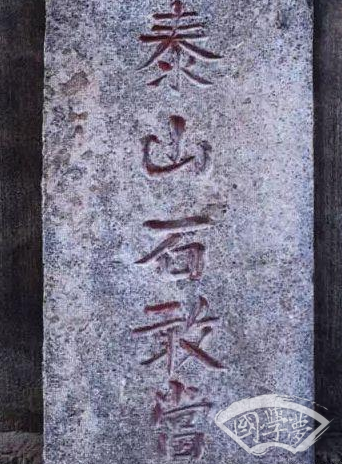 泰山石敢當
國學夢